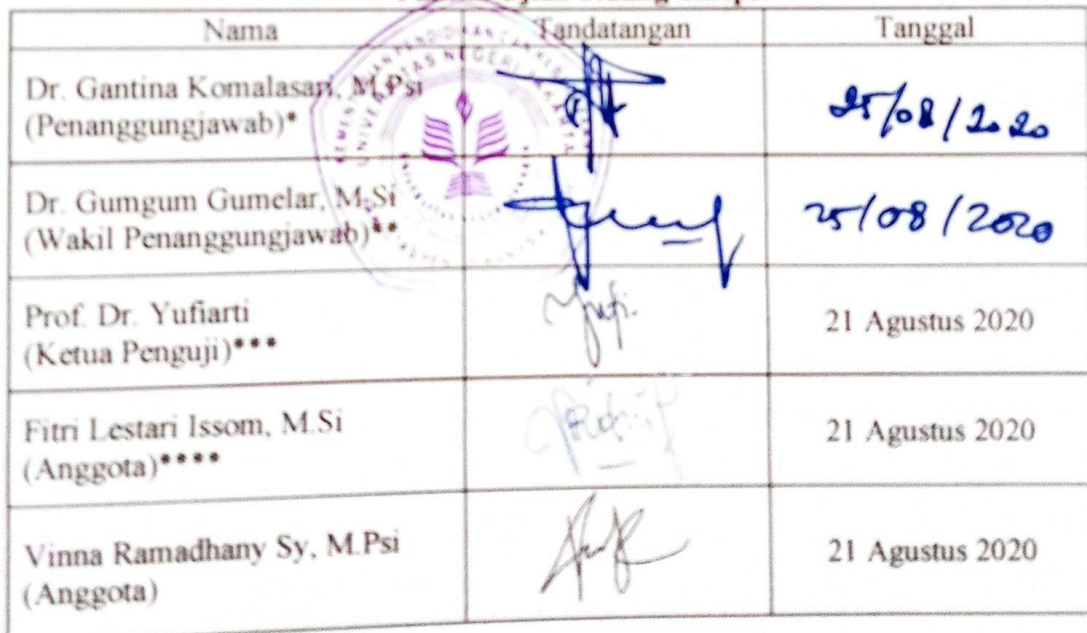 Nama Tandatangan Tanggal
Dr. Gantina Komalasari, M.Psi
(Penanggungjawab)*
25/08/2020
Dr. Gumgum Gumelar, M.Si
(Wakil Penanggungjawab)**
25/08/2020
Prof. Dr. Yufiarti
(Ketua Penguji)***
Yufi.
21 Agustus 2020
Fitri Lestari Issom, M.Si
(Anggota)****
21 Agustus 2020
Vinna Ramadhany Sy, M.Psi
(Anggota)
21 Agustus 2020
UNIVERSITAS NEGERI